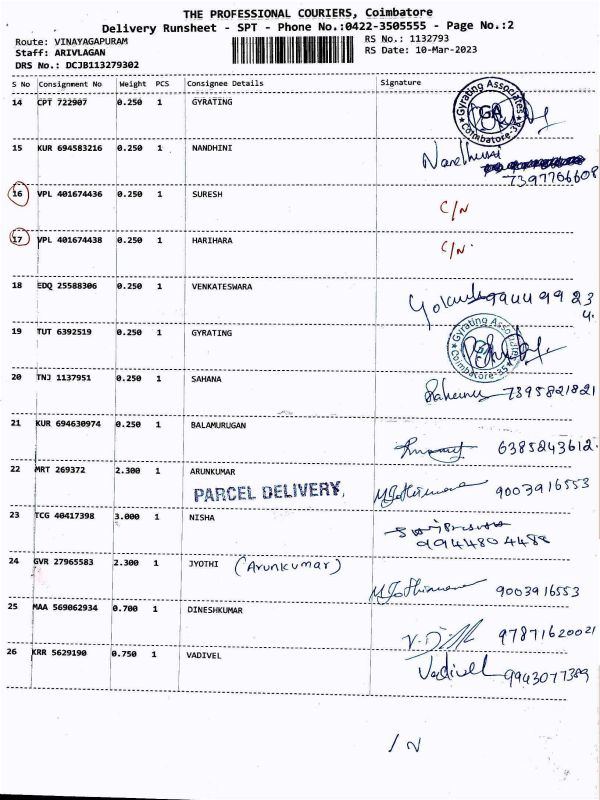 THE PROFESSIONAL COURIERS, Coimbatore
Delivery Runsheet - SPT - Phone No.:0422-3505555 - Page No.:2
Route: VINAYAGAPURAM RS No.: 1132793
Staff: ARIVLAGAN RS Date: 10-Mar-2023
DRS No.: DCJB113279302
S No Consignment No Weight PCS Consignee Details Signature
14 CPT 722907 0.250 1 GYRATING
Gyrating Associates GA Coimbatore-35
15 KUR 694583216 0.250 1 NANDHINI
7397766608
16 VPL 401674436 0.250 1 SURESH C/N
17 VPL 401674438 0.250 1 HARIHARA C/N.
18 EDQ 25588306 0.250 1 VENKATESWARA
19 TUT 6392519 0.250 1 GYRATING
Gyrating Associates Coimbatore-35
20 TNJ 1137951 0.250 1 SAHANA 7395821821
21 KUR 694630974 0.250 1 BALAMURUGAN 6385243612.
22 MRT 269372 2.300 1 ARUNKUMAR
PARCEL DELIVERY, 9003916553
23 TCG 40417398 3.000 1 NISHA
9944804488
24 GVR 27965583 2.300 1 JYOTHI (Arunkumar)
9003916553
25 MAA 569062934 0.700 1 DINESHKUMAR
97871620021
26 KRR 5629190 0.750 1 VADIVEL Vadivel 9943077389
/ N